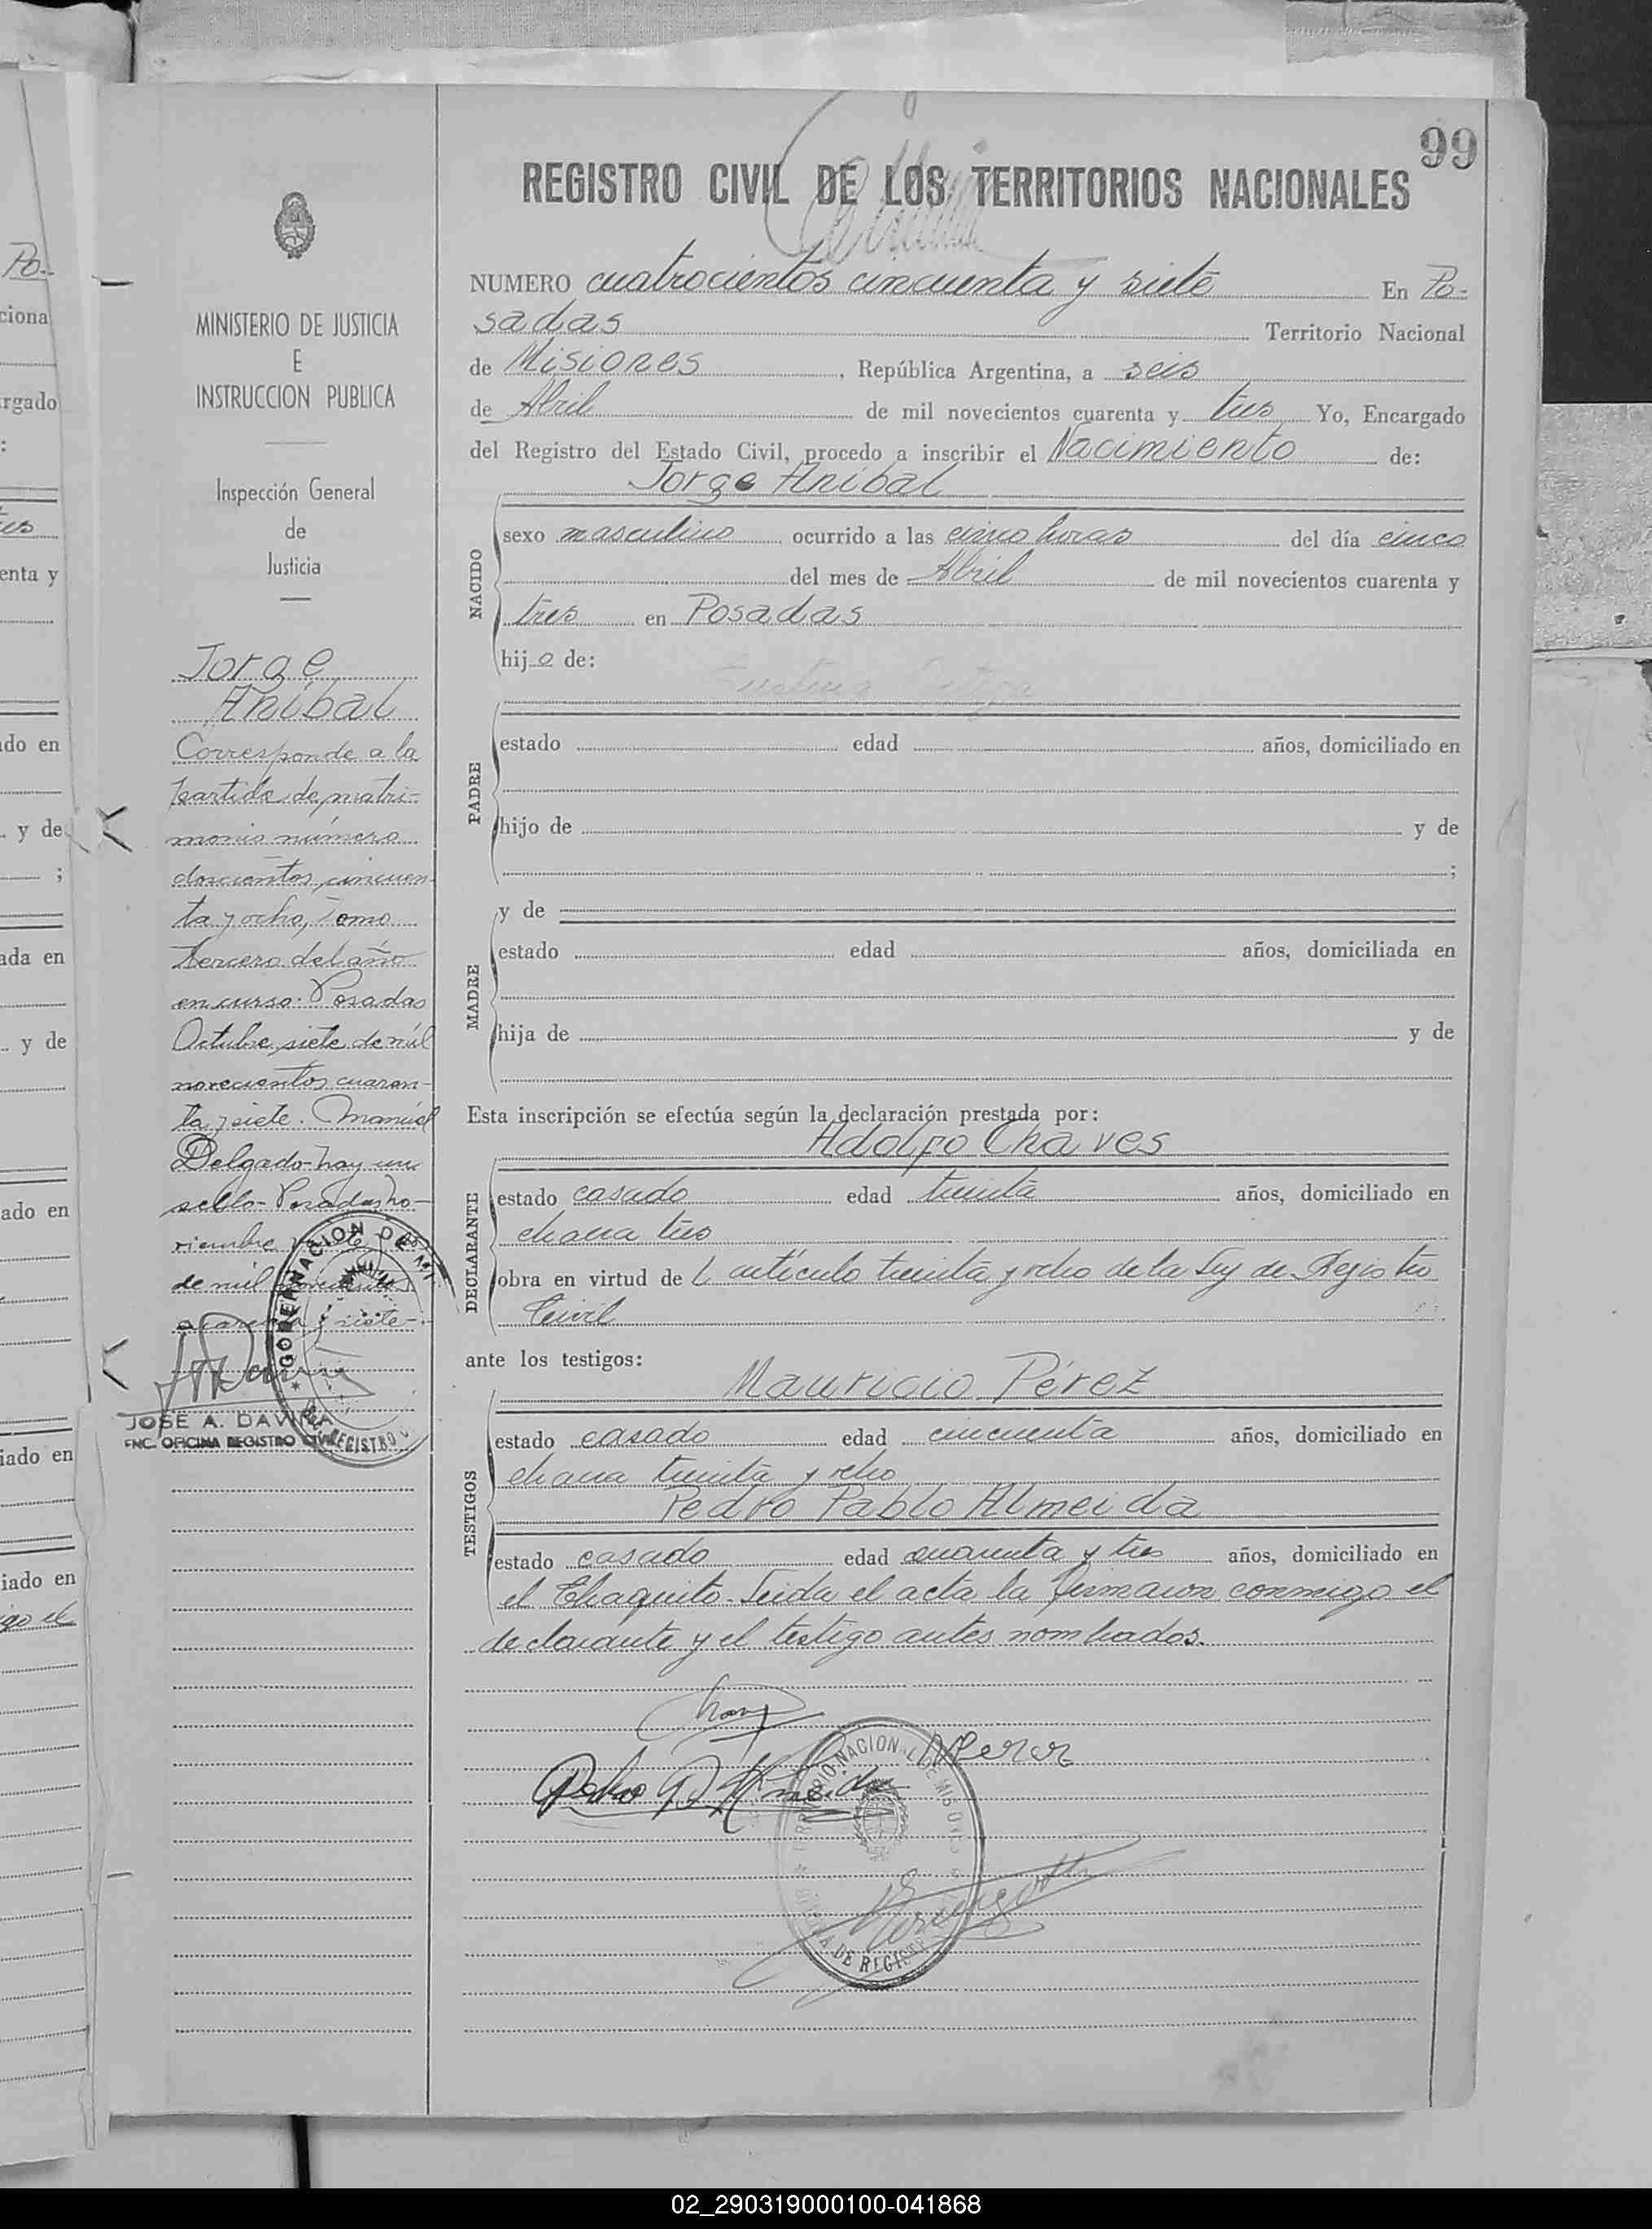 99
REGISTRO CIVIL DE LOS TERRITORIOS NACIONALES
NUMERO cuatrocientos cincuenta y siete En Po-
sadas Territorio Nacional
de Misiones, República Argentina, a seis
de Abril de mil novecientos cuarenta y tres Yo, Encargado
del Registro del Estado Civil, procedo a inscribir el Nacimiento de:
Jorge Anibal
NACIDO
sexo masculino ocurrido a las cinco horas del día cinco
del mes de Abril de mil novecientos cuarenta y
tres en Posadas
hijo de:
PADRE
estado edad años, domiciliado en
hijo de y de
;
y de
MADRE
estado edad años, domiciliada en
hija de y de
Esta inscripción se efectúa según la declaración prestada por:
Adolfo Chaves
DECLARANTE
estado casado edad treinta años, domiciliado en
chacra tres
obra en virtud del artículo treinta y ocho de la Ley de Registro
Civil
ante los testigos:
Mauricio Pérez
TESTIGOS
estado casado edad cincuenta años, domiciliado en
chacra treinta y ocho
Pedro Pablo Almeida
estado casado edad cuarenta y tres años, domiciliado en
el Chaquito. Leida el acta la firmaron conmigo el
declarante y el testigo antes nombrados.
Pedro P. Almeida
MINISTERIO DE JUSTICIA
E
INSTRUCCION PUBLICA
Inspección General
de
Justicia
Jorge
Anibal
Corresponde a la
partida de matri-
monio número
doscientos cincuen-
ta y ocho, tomo
tercero del año
en curso. Posadas
Octubre siete de mil
novecientos cuaren-
ta y siete. Manuel
Delgado-hay un
sello-Posadas, no-
viembre
de mil novecientos
cuarenta y siete-.
GOBERNACION DE MI
REGISTRO
JOSE A. DAVIÑA
ENC. OFICINA REGISTRO CIVIL
TERRITORIO NACIONAL DE MISIONES
DE REGIST
Po-
ciona
rgado
:
enta y
ado en
y de
;
ada en
y de
ado en
iado en
iado en
02_290319000100-041868